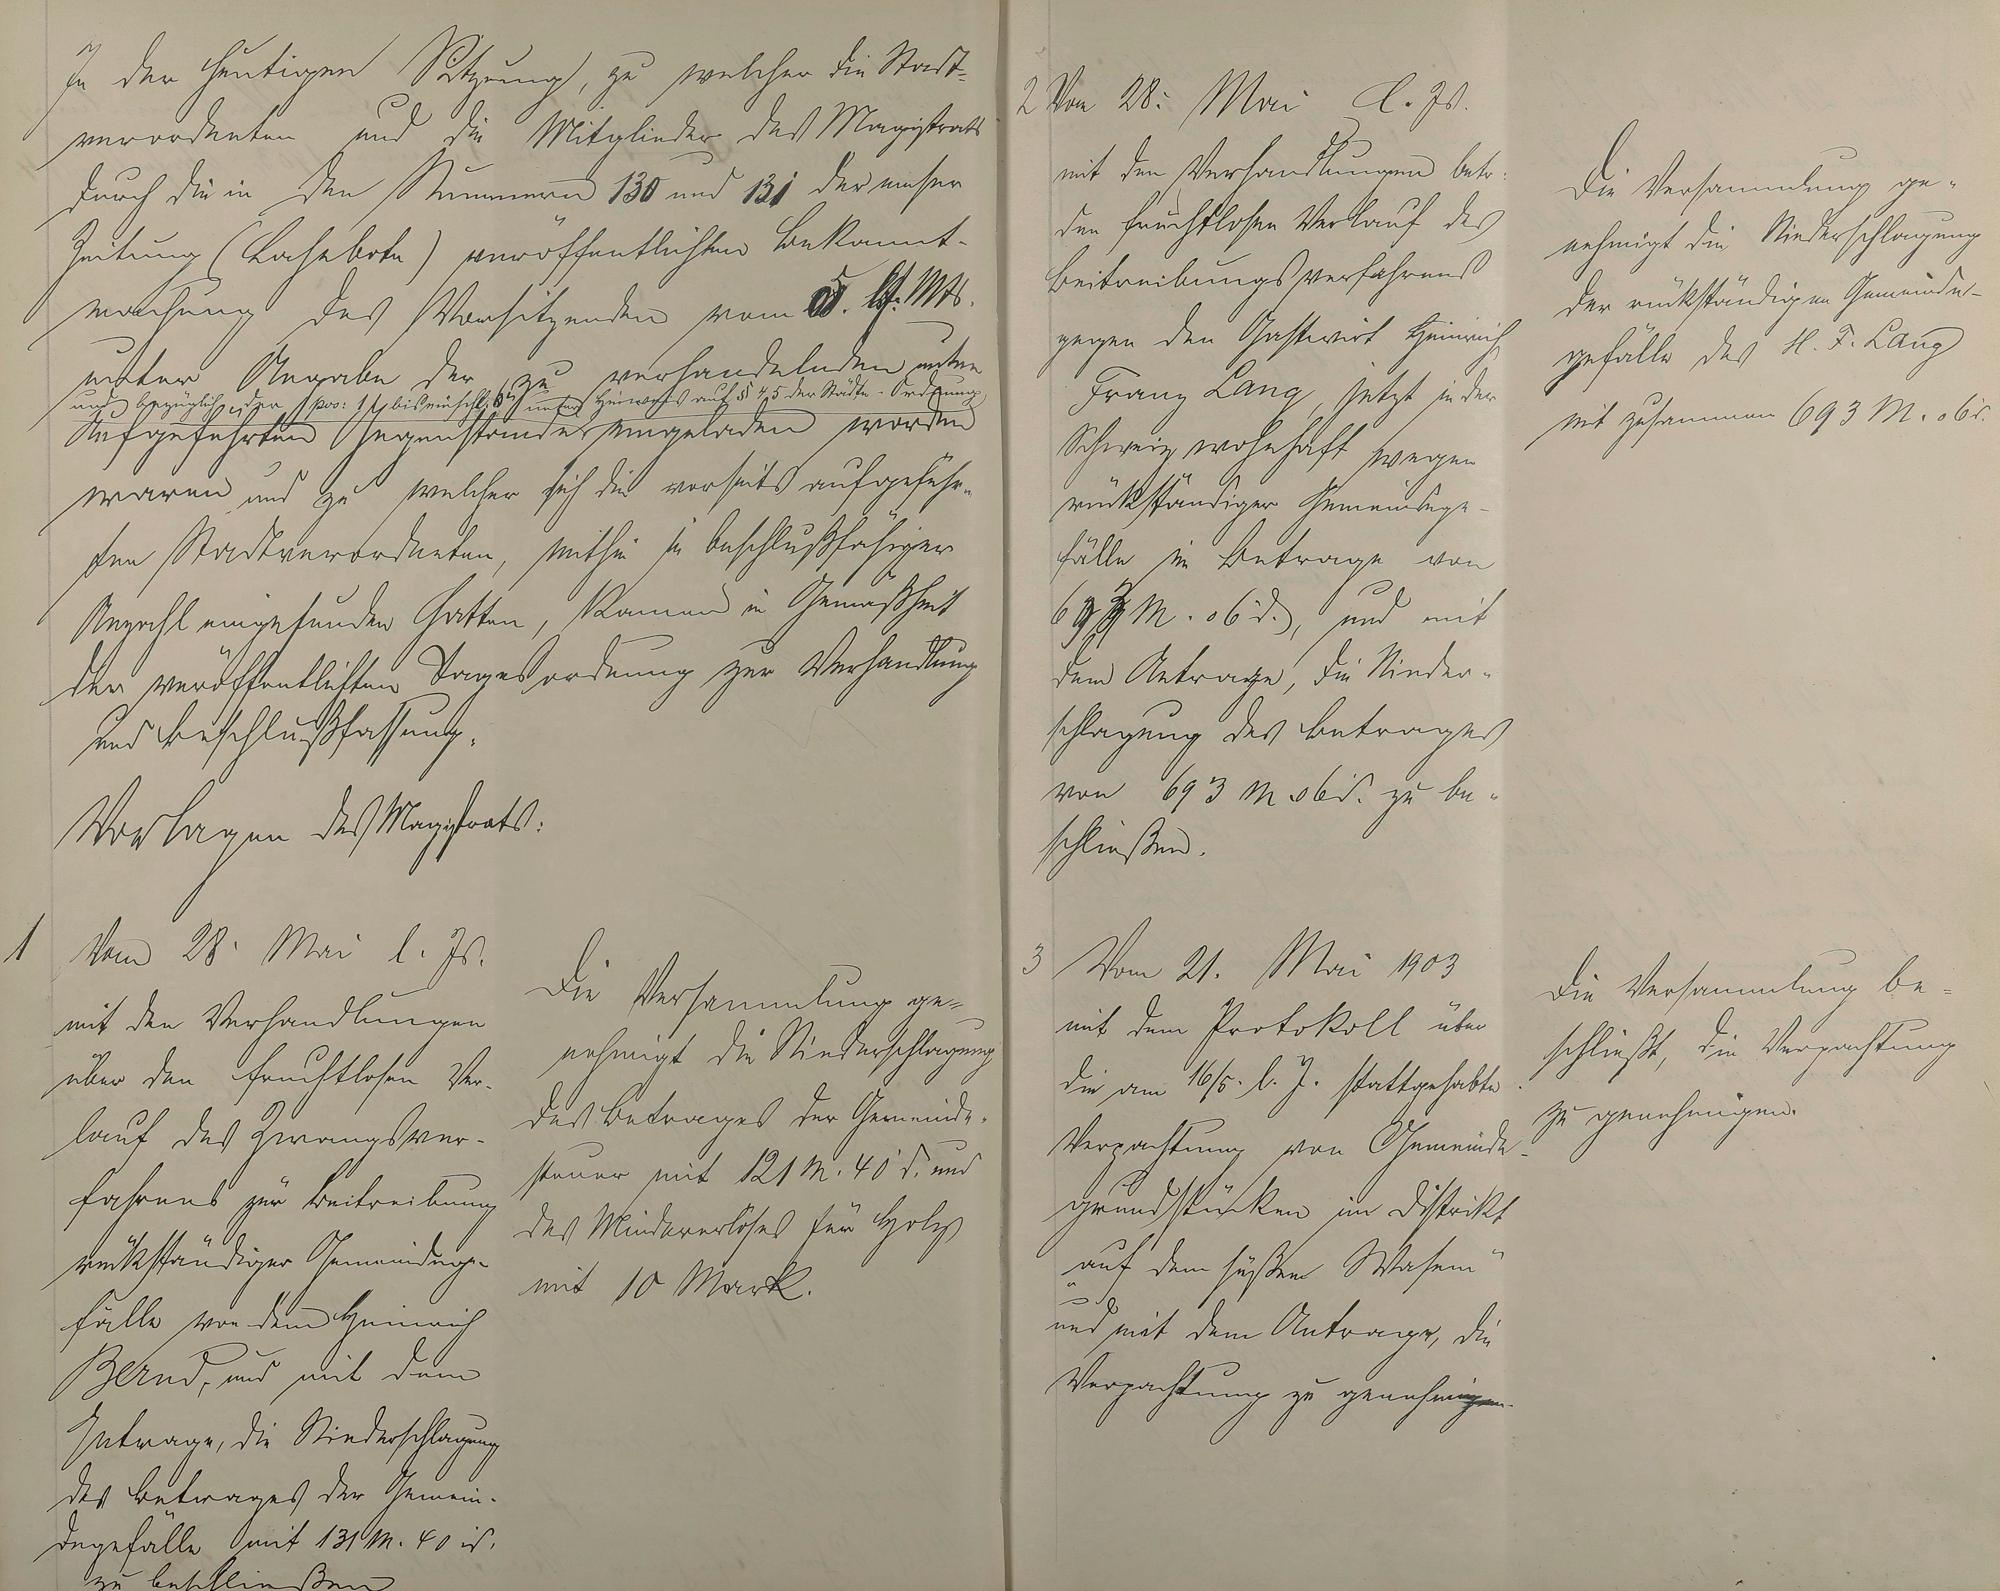 In der heutigen Sitzung, zu welcher die Stadt-
verordneten und die Mitglieder des Magistrats
durch die in den Nummern 130 und 131 der emser
Zeitung (Lahnbote) veröffentlichten Bekannt-
machung des Vorsitzenden vom 5. lf. Mts.
unter Angabe der zu verhandelnden unten
und bezüglich der pos: 1 bis einschl. unter Hinweis auf § 45 der Städte-Ordnung
aufgeführten Gegenstände eingeladen worden
waren und zu welcher sich die vorseits aufgeführ-
ten Stadtverordneten, mithin in beschlußfähiger
Anzahl eingefunden hatten, kamen in Gemäßheit
der veröffentlichten Tagesordnung zur Verhandlung
und Beschlußfassung.
Vorlagen des Magistrats:
1 Vom 28. Mai l. Js.
mit den Verhandlungen
über den fruchtlosen Ver-
lauf des Zwangsver-
fahrens zur Beitreibung
rückständiger Gemeindege-
fälle von dem Heinrich
Bernd, und mit dem
Antrage, die Niederschlagung
des Betrages der Gemein-
degefälle mit 131 M. 40 d.
zu beschließen
Die Versammlung ge-
nehmigt die Niederschlagung
des Betrages der Gemeinde-
steuer mit 121 M. 40 d. und
des Mindererlöses für Holz
mit 10 Mark.
2 Vom 28. Mai l. Js.
mit den Verhandlungen betr.
den fruchtlosen Verlauf des
Beitreibungsverfahrens
gegen den Gastwirt Heinrich
Franz Lang, jetzt in der
Schweiz wohnhaft wegen
rückständiger Gemeindege-
fälle im Betrage von
693 M. 06 d., und mit
dem Antrage, die Nieder-
schlagung des Betrages
von 693 M 06 d. zu be-
schließen.
Die Versammlung ge-
nehmigt die Niederschlagung
der rückständigen Gemeinde-
gefälle des H. F. Lang
mit zusammen 693 M. 06 d.
3 Vom 21. Mai 1903
mit dem Protokoll über
die am 16/5. l. J. stattgehabte
Verpachtung von Gemeinde-
grundstücken im Distrikt
„auf dem süßen Wasem"
und mit dem Antrage, die
Verpachtung zu genehmigen.
Die Versammlung be-
schließt, die Verpachtung
zu genehmigen.